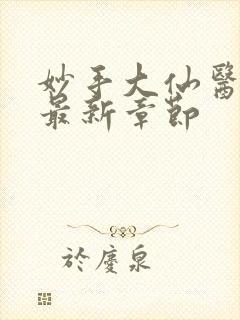 妙手大仙醫
最新章節
於慶泉